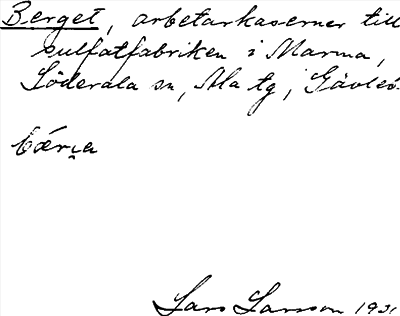 Berget, arbetarkaserner till
sulfatfabriken i Marma,
Söderala sn, Ala tg, Gävleb.
bærⱼa
Lars Larsson 1931